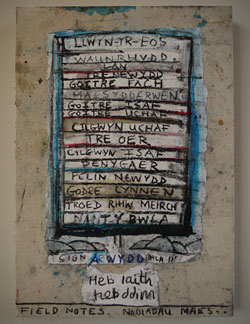 LLWYN-YR-EOS
WAUNRHYDD.
TRE NEWYDD
GOITRE FACH
MAESYDDERWEN
GOITRE ISAF
GOITRE UCHAF
CILGWYN UCHAF
TRE OER
CILGWYN ISAF
PENYGAER
FELIN NEWYDD
GODRE CYNNEN
TROED RHIW MEIRCH
NANTYBWLA
SIGN ARWYDD
Heb iaith
heb ddim
FIELD NOTES. NODIADAU MAES..